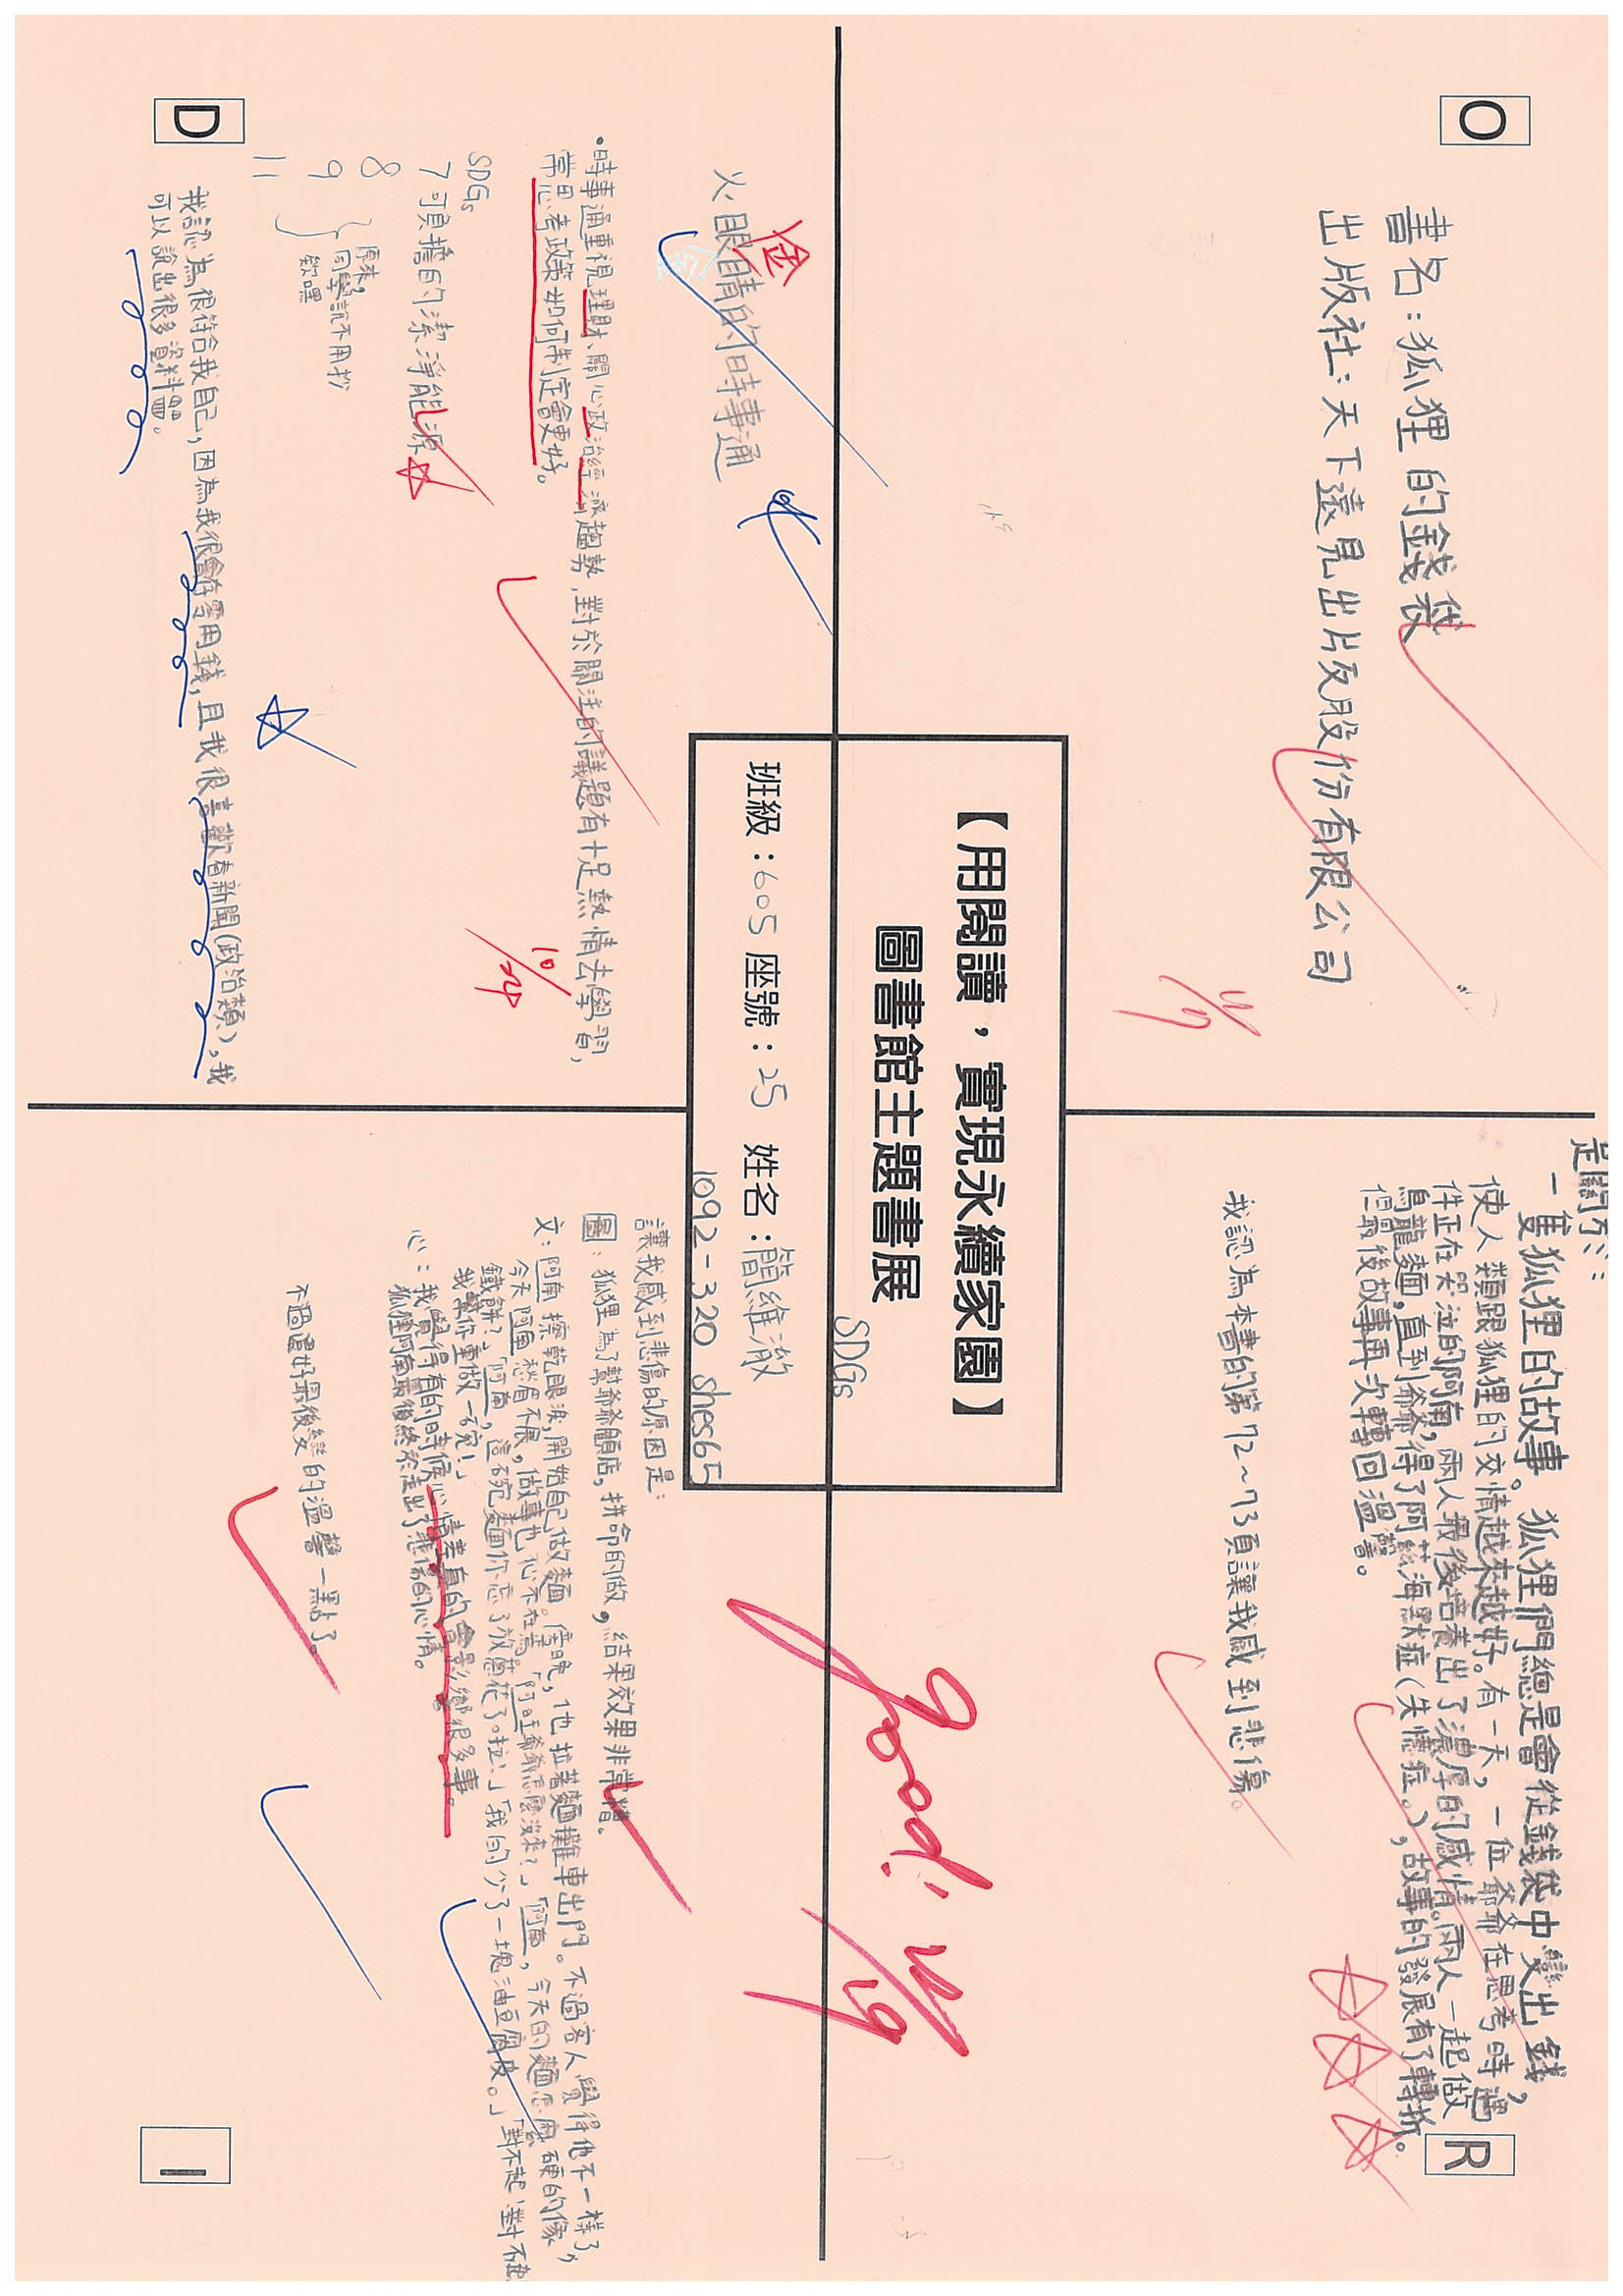 O
書名：狐狸的錢袋
出版社：天下遠見出片反股份有限公司
4/7
R
是關於：
一隻狐狸的故事。狐狸們總是會從錢袋中變出錢，
使人類跟狐狸的交情越來越好。有一天，一位爺爺在思考時遇
件正在哭泣的阿南，兩人最後培養出了濃厚的感情。兩人一起做
烏龍麵，直到爺爺得了阿茲海默症（失憶症。），故事的發展有了轉折。
但最後故事再次轉回溫馨。
我認為本書的第72～73頁讓我感到悲傷。
【用閱讀，實現永續家園】
圖書館主題書展
班級：605 座號：25 姓名：簡維澈
SDGs
1092-320 shes65
good!
D
火眼睛的時事通
金
•時事通重視理財、關心政治經濟趨勢，對於關注的議題有十足熱情去學習，
常思考政策如何制定會更好。
10/24
SDGs
7 可負擔的潔淨能源
8
9
11
原來，
同學說不用抄
欸嘿
我認為很符合我自己，因為我很會存零用錢，且我很喜歡看新聞（政治類），我
可以說出很多資料喔。
I
讓我感到悲傷的原因是：
圖：狐狸為了幫爺爺顧店，拼命的做，結果效果非常糟。
文：阿南擦乾眼淚，開始自己做麵。傍晚，他拉著麵攤車出門。不過客人覺得他不一樣了，
今天阿南愁眉不展，做事也心不在焉。「阿旺爺爺怎麼沒來？」「阿南，今天的麵怎麼硬的像
鐵餅？」「阿南，這碗麵你忘了放蔥花了啦！」「我的少了一塊油豆腐皮。」「對不起，對不起
我幫你重做一碗！」
心：我覺得有的時候心情差真的會影響很多事。
狐狸阿南最後終於走出了悲傷的心情。
不過還好最後變的溫馨一點了。